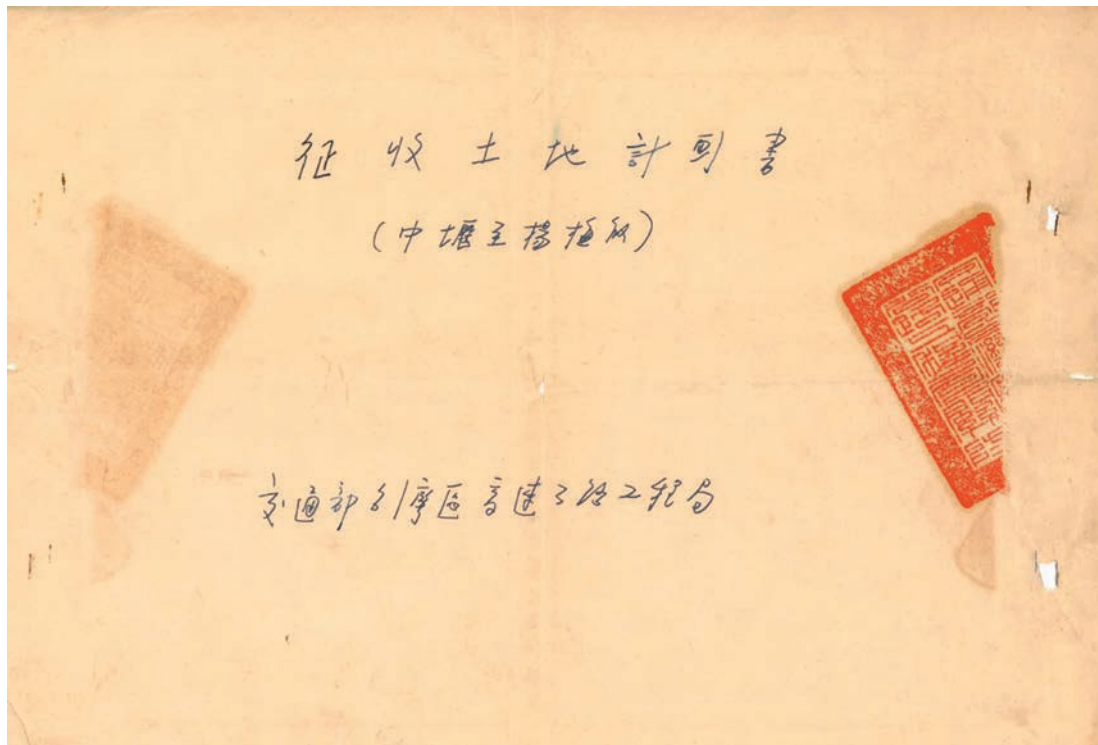 征收土地計劃書
(中壢至楊梅段)
交通部台灣區高速公路工程局